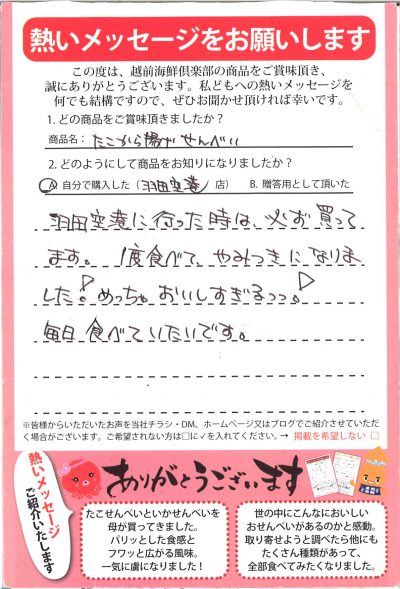 熱いメッセージをお願いします
この度は、越前海鮮倶楽部の商品をご賞味頂き、
誠にありがとうございます。私どもへの熱いメッセージを
何でも結構ですので、ぜひお聞かせ頂ければ幸いです。
1. どの商品をご賞味頂きましたか？
商品名： たこから揚げせんべい
2. どのようにして商品をお知りになりましたか？
A 自分で購入した（羽田空港 店） B. 贈答用として頂いた
羽田空港に行った時は、必ず買って
ます。 1度食べて、やみつきになりま
した！めっちゃおいしすぎるっっ！
毎日食べていたいです。
※皆様からいただいたお声を当社チラシ・DM、ホームページ又はブログでご紹介させていただ
く場合がございます。ご希望されない方は□に✓を入れてください。→ 掲載を希望しない □
熱いメッセージ
ご紹介いたします
ありがとうございます
たこせんべいといかせんべいを
母が買ってきました。
パリッとした食感と
フワッと広がる風味。
一気に虜になりました！
世の中にこんなにおいしい
おせんべいがあるのかと感動。
取り寄せようと調べたら他にも
たくさん種類があって、
全部食べてみたくなりました。